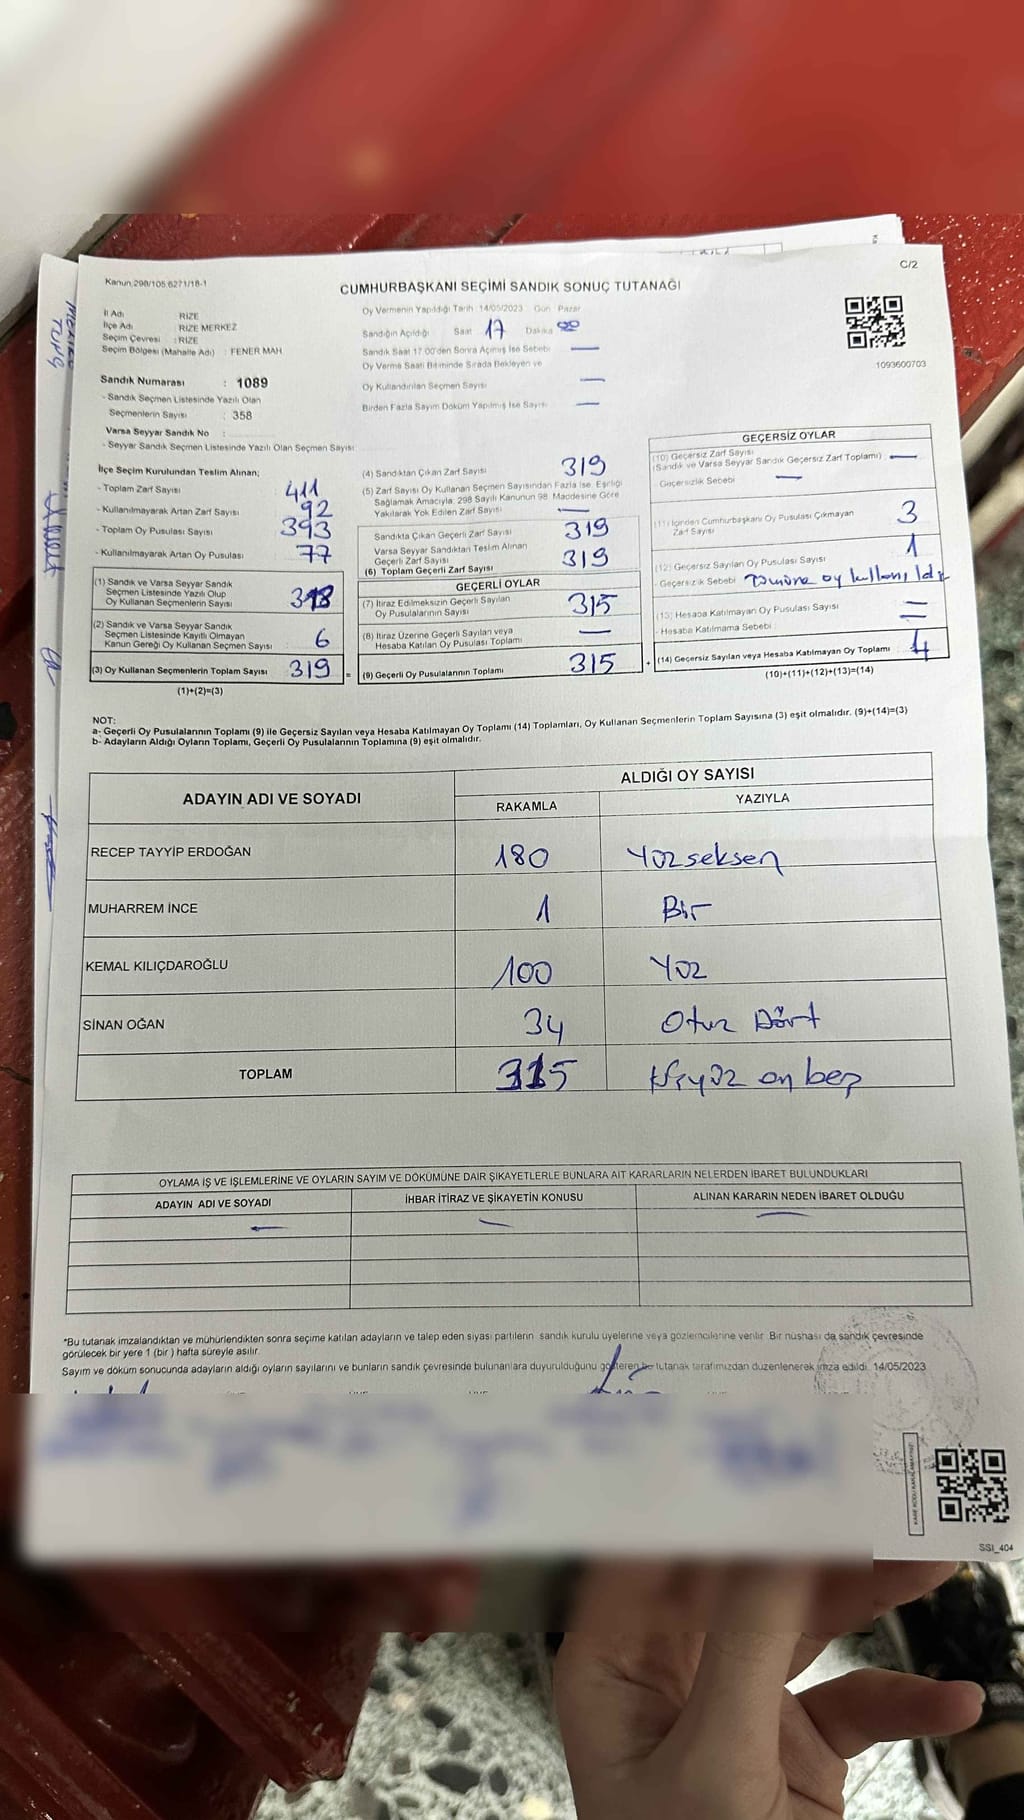 C/2
Kanun 298/105 6271/18-1
CUMHURBAŞKANI SEÇİMİ SANDIK SONUÇ TUTANAĞI
1093600703
İl Adı RİZE
İlçe Adı : RİZE MERKEZ
Seçim Çevresi : RİZE
Seçim Bölgesi (Mahalle Adı) : FENER MAH
Sandık Numarası : 1089
- Sandık Seçmen Listesinde Yazılı Olan
Seçmenlerin Sayısı : 358
Varsa Seyyar Sandık No :
- Seyyar Sandık Seçmen Listesinde Yazılı Olan Seçmen Sayısı
Oy Vermenin Yapıldığı Tarih 14/05/2023 Gün Pazar
Sandığın Açıldığı Saat 17 Dakika 00
Sandık Saat 17 00'den Sonra Açılmış İse Sebebi —
Oy Verme Saati Bitiminde Sırada Bekleyen ve
Oy Kullandırılan Seçmen Sayısı —
Birden Fazla Sayım Döküm Yapılmış İse Sayısı —
İlçe Seçim Kurulundan Teslim Alınan;
- Toplam Zarf Sayısı 411
- Kullanılmayarak Artan Zarf Sayısı 92
- Toplam Oy Pusulası Sayısı 393
- Kullanılmayarak Artan Oy Pusulası 77
(1) Sandık ve Varsa Seyyar Sandık
Seçmen Listesinde Yazılı Olup
Oy Kullanan Seçmenlerin Sayısı
(2) Sandık ve Varsa Seyyar Sandık
Seçmen Listesinde Kayıtlı Olmayan
Kanun Gereği Oy Kullanan Seçmen Sayısı 6
(3) Oy Kullanan Seçmenlerin Toplam Sayısı 319 =
(1)+(2)=(3)
(4) Sandıktan Çıkan Zarf Sayısı 319
(5) Zarf Sayısı Oy Kullanan Seçmen Sayısından Fazla İse, Eşitliği
Sağlamak Amacıyla, 298 Sayılı Kanunun 98. Maddesine Göre
Yakılarak Yok Edilen Zarf Sayısı —
Sandıkta Çıkan Geçerli Zarf Sayısı 319
Varsa Seyyar Sandıktan Teslim Alınan
Geçerli Zarf Sayısı
(6) Toplam Geçerli Zarf Sayısı 319
GEÇERLİ OYLAR
(7) İtiraz Edilmeksizin Geçerli Sayılan
Oy Pusulalarının Sayısı 315
(8) İtiraz Üzerine Geçerli Sayılan veya
Hesaba Katılan Oy Pusulası Toplamı —
(9) Geçerli Oy Pusulalarının Toplamı 315 +
GEÇERSİZ OYLAR
(10) Geçersiz Zarf Sayısı
(Sandık ve Varsa Seyyar Sandık Geçersiz Zarf Toplamı) —
- Geçersizlik Sebebi —
(11) İçinden Cumhurbaşkanı Oy Pusulası Çıkmayan
Zarf Sayısı 3
(12) Geçersiz Sayılan Oy Pusulası Sayısı 1
- Geçersizlik Sebebi tümüne oy kullanıldı
(13) Hesaba Katılmayan Oy Pusulası Sayısı —
- Hesaba Katılmama Sebebi —
(14) Geçersiz Sayılan veya Hesaba Katılmayan Oy Toplamı 4
(10)+(11)+(12)+(13)=(14)
NOT:
a- Geçerli Oy Pusulalarının Toplamı (9) ile Geçersiz Sayılan veya Hesaba Katılmayan Oy Toplamı (14) Toplamları, Oy Kullanan Seçmenlerin Toplam Sayısına (3) eşit olmalıdır. (9)+(14)=(3)
b- Adayların Aldığı Oyların Toplamı, Geçerli Oy Pusulalarının Toplamına (9) eşit olmalıdır.
ADAYIN ADI VE SOYADI ALDIĞI OY SAYISI
RAKAMLA YAZIYLA
RECEP TAYYİP ERDOĞAN 180 Yüzseksen
MUHARREM İNCE 1 Bir
KEMAL KILIÇDAROĞLU 100 Yüz
SİNAN OĞAN 34 Otuz Dört
TOPLAM 315 üçyüz on beş
OYLAMA İŞ VE İŞLEMLERİNE VE OYLARIN SAYIM VE DÖKÜMÜNE DAİR ŞİKAYETLERLE BUNLARA AİT KARARLARIN NELERDEN İBARET BULUNDUKLARI
ADAYIN ADI VE SOYADI İHBAR İTİRAZ VE ŞİKAYETİN KONUSU ALINAN KARARIN NEDEN İBARET OLDUĞU
— — —
*Bu tutanak imzalandıktan ve mühürlendikten sonra seçime katılan adayların ve talep eden siyasi partilerin sandık kurulu üyelerine veya gözlemcilerine verilir. Bir nüshası da sandık çevresinde
görülecek bir yere 1 (bir) hafta süreyle asılır.
Sayım ve döküm sonucunda adayların aldığı oyların sayılarını ve bunların sandık çevresinde bulunanlara duyurulduğunu gösteren bu tutanak tarafımızdan düzenlenerek imza edildi. 14/05/2023
SSI_404